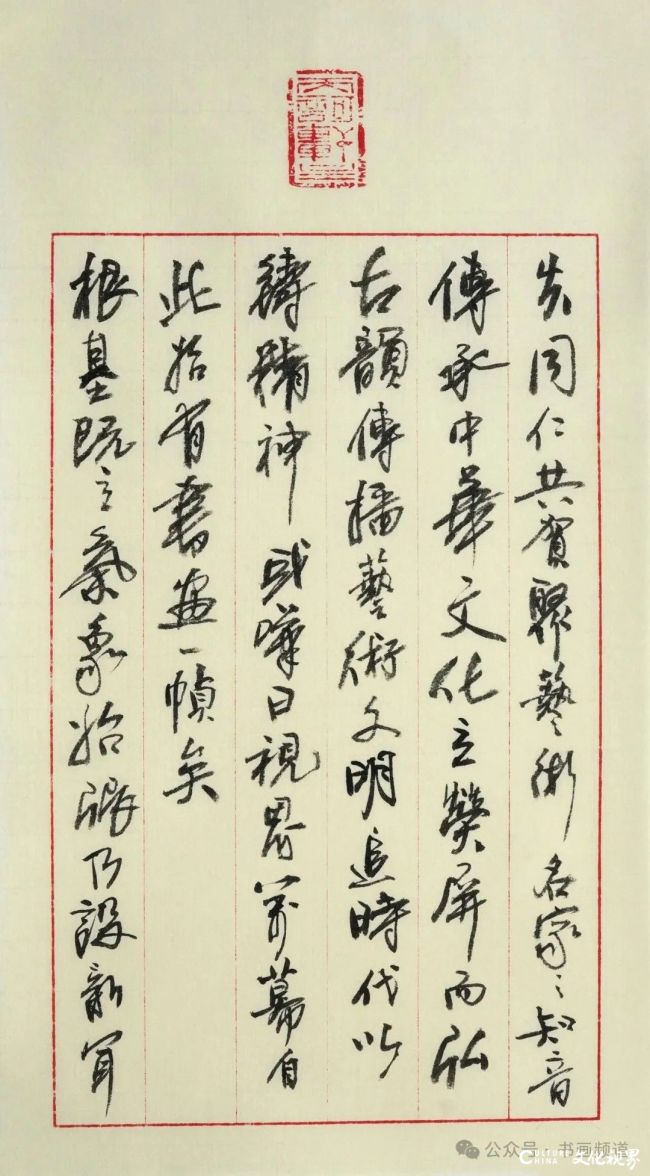 先同仁共賀聚藝術名家之知音
傳承中華文化立熒屏而弘
古韻傳播藝術文明追時代以
鑄精神 或嘆曰視界第幕自
此始有書畫一幀矣
根基既立氣象始張乃設新
公众号 · 书画频道
CULTURE CHINA 文化视界